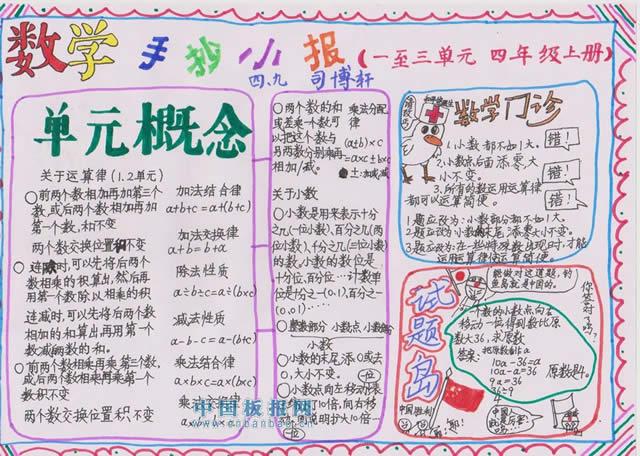 数学手抄小报(一至三单元 四年级上册)
四、九 司博轩
单元概念
关于运算律(1.2单元)
○前两个数相加再加第三个
数,或后两个数相加再加第
一个数,和不变
加法结合律
a+b+c=a+(b+c)
两个数交换位置和不变
加法交换律
a+b=b+a
○连除时,可以先将后两个
数相乘的积算出,然后再
用第一个数除以相乘的积
除法性质
a÷b÷c=a÷(b×c)
连减时,可以先将后两个数
相加的和算出再用第一个
数减两数的和。
减法性质
a-b-c=a-(b+c)
○前两个数相乘再乘第三个数,
或后两个数相乘再乘第一个
数积不变
乘法结合律
a×b×c=a×(b×c)
两个数交换位置积不变
乘法交换律
○两个数的和
或差乘一个数可
以把这个数与
另两数分别乘再
相加/减。
乘法分配
律
(a±b)×c
=a×c±b×c
±:加或减
关于小数
○小数是用来表示十分
之几(一位小数)、百分之几(两
位小数)、千分之几(三位小数)
的数,小数的数位是
十分位,百分位…计数单
位是十分之一(0.1),百分之一
(0.01)……
○整数部分 小数点 小数部分
小数
○小数的末尾添0或去
0,大小不变。
○小数点向左移动
一位
数学门诊
1.小数都不如1大。
错!
2.小数点后面添零大
小不变。
错!
3.所有的数运用运算律
都可以运算简便。
错!
1.题应改为:小数部分都不如1大。
2.题应改为:小数的末尾添零大小不变。
3.题应改为:在一些特殊数出现时,才能
运用运算律使运算简便。
试题岛
能做对这道题,钓
鱼岛就是中国的。
你答对了吗?
一个数的小数点向右
移动一位得到数比原
数大36,求原数
答案:把原数看作a
10a-36=a
10a-a=36
9a=36
36÷9
4
原数是4。
中国胜利!
中国板报网
www.cnbanbao.cn